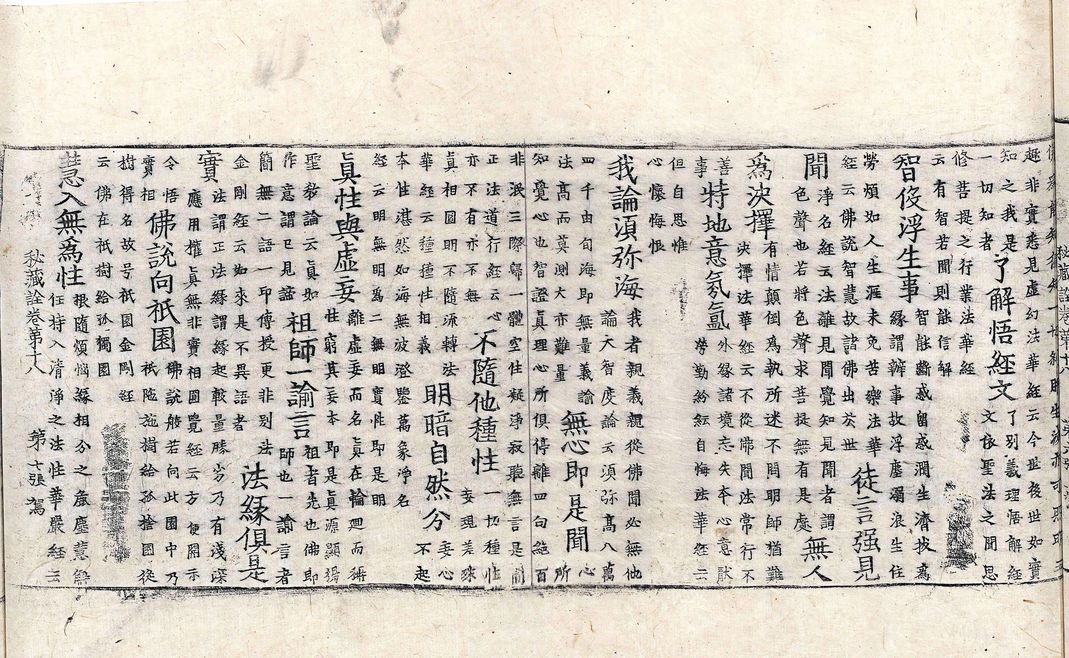 超非實悉見虛幻法華經云今世後世如實
知之我是
一切知者
了解悟經文
了別義理悟解經
文依聖法之聞思
修菩提之行業法華經
云有智若聞則能信解
智伇浮生事
智能斷惑留惑潤生濟拔為
緣謂辦事故浮塵濁浪生住
勞煩如人生涯未免苦樂法華
經云佛説智慧故諸佛出於世
徒言强見
聞
淨名經云法離見聞覺知見聞者謂
色聲也若將色聲求菩提無有是處
無人
爲決擇
有情顛倒為執所迷不問明師猶難
決擇法華經云不從佛聞法常行不
善
事
特地意氛氳
外緣諸境忘失本心意猒
勞勤於經自悔法華經云
但自思惟
心懷悔恨
我論須弥海
我者親義親從佛聞必無他
論大智度論云須弥髙八萬
四千由旬海即無量義諭
法髙而莫測大亦難量
無心即是聞
心
所
非泯三際歸一體空住疑淨寂聚無言是聞
知覺心也智證真理心所俱停離四句絶百
正法道行經云心
亦不有亦不無
不隨他種性
一切種性
妄現差殊
真相圓明不隨流轉法
華經云種種性相義
明暗自然分
妄心
不起
本性湛然如海無波澄鑒萬象淨名
經云明無明為二無明實性即是明
真性與虛妄
離虛妄而名真在輪廻而稱
性窮其妄本即是真源顯揚
聖教論云真如
作意謂已見諦
祖師一諭言
祖者先也佛即
師也一諭言者
簡無二語一印傳授更非别法
金剛經云如來是不異語者
法緣俱是
實
法謂正法緣謂緣起教量勝劣乃有淺深
應用權真無非實相圓覺經云方便開示
令悟
實相
佛説向祇園
佛説般若向此園中乃
祇陁施樹給孤捨園從
樹得名故号祇園金剛經
云佛在祇樹給孤獨園
慧入無為性
根隨煩惱緣相分之處塵慧能
任持入清淨之法性華嚴經云
秘藏詮卷第十八 第七張 駕